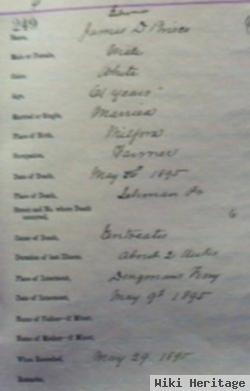 249
Name, James D
Male or Female, Male
Color, White
Age, 61 years
Married or Single, Married
Place of Birth, Milford
Occupation, Farmer
Date of Death, May 1895
Place of Death, Lehman Pa
Street and No. where Death occurred,
Cause of Death,
Duration of last Illness, About 2 weeks
Place of Interment, Dingmans Ferry
Date of Interment, May 1895
Name of Father—if Minor,
Name of Mother—if Minor,
When Recorded, May 29. 1895
Remarks,
Wiki Heritage